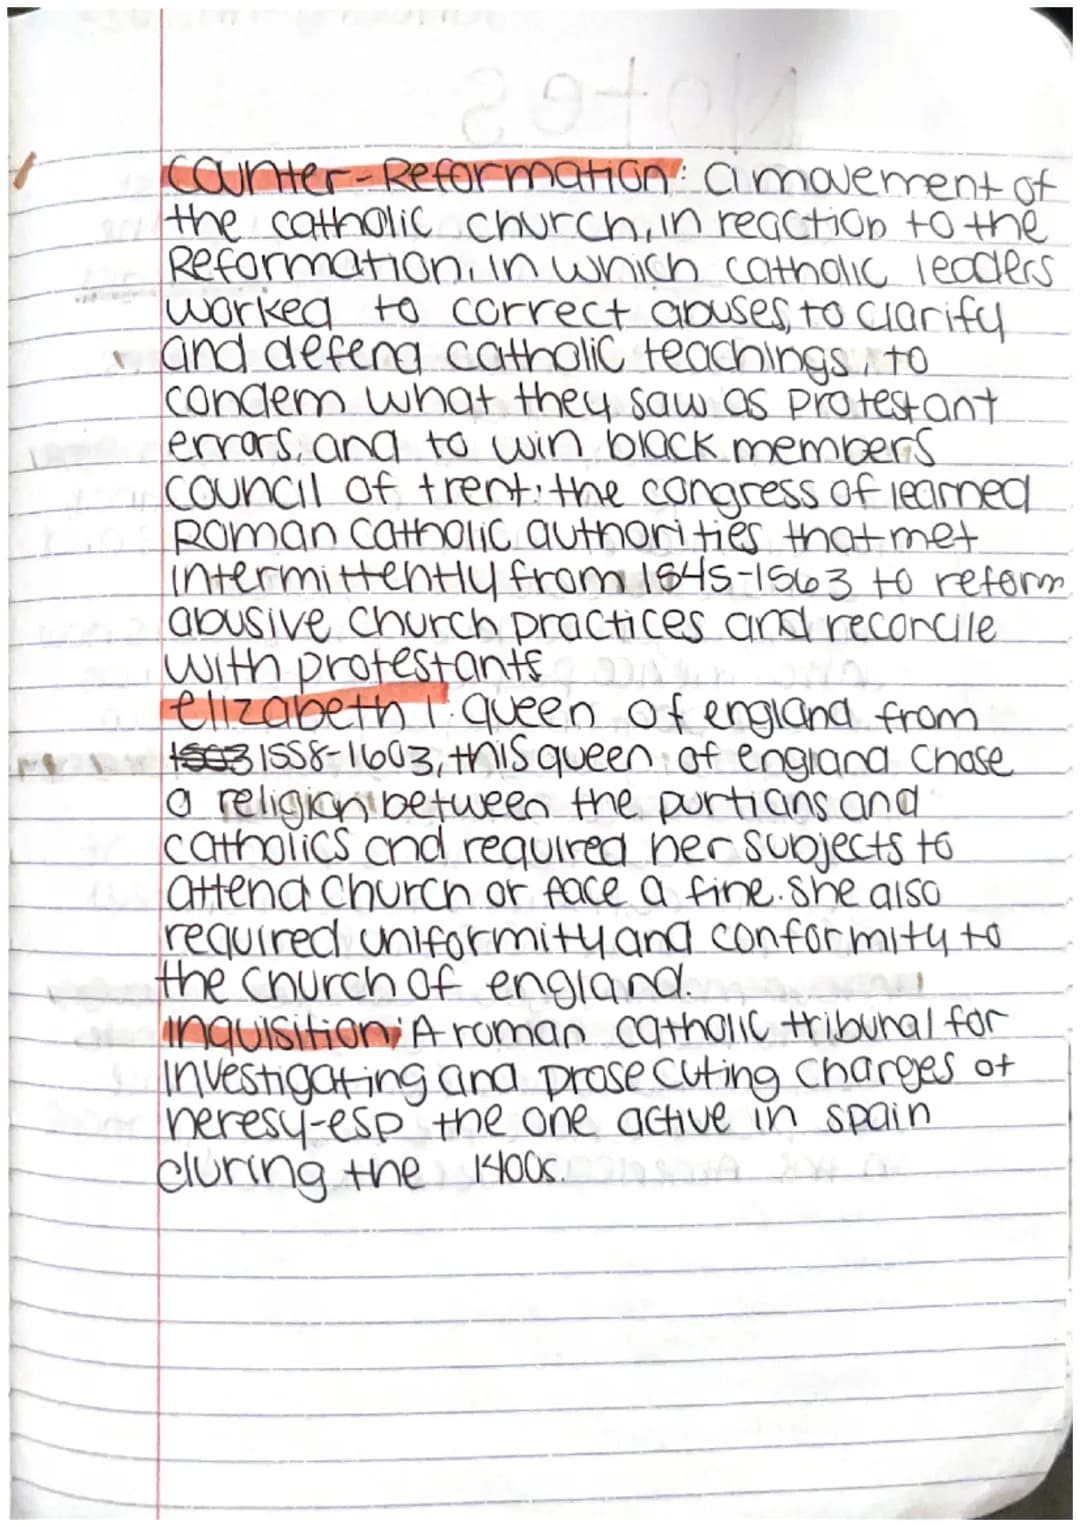 Counter-Reformation: a movement of
the catholic church, in reaction to the
Reformation, in which catholic leaders
worked to correct abuses, to clarify
and defend catholic teachings, to
condem what they saw as protestant
errors, and to win black members
council of trent: the congress of learned
Roman catholic authorities that met
intermittently from 1545-1563 to reform
abusive church practices and reconcile
with protestants
elizabeth I: queen of england from
1558-1603, this queen of england chose
a religion between the purtians and
catholics and required her subjects to
attend church or face a fine. She also
required uniformity and conformity to
the church of england.
inquisition: A roman catholic tribunal for
investigating and prosecuting charges of
heresy-esp the one active in spain
during the 1400s.